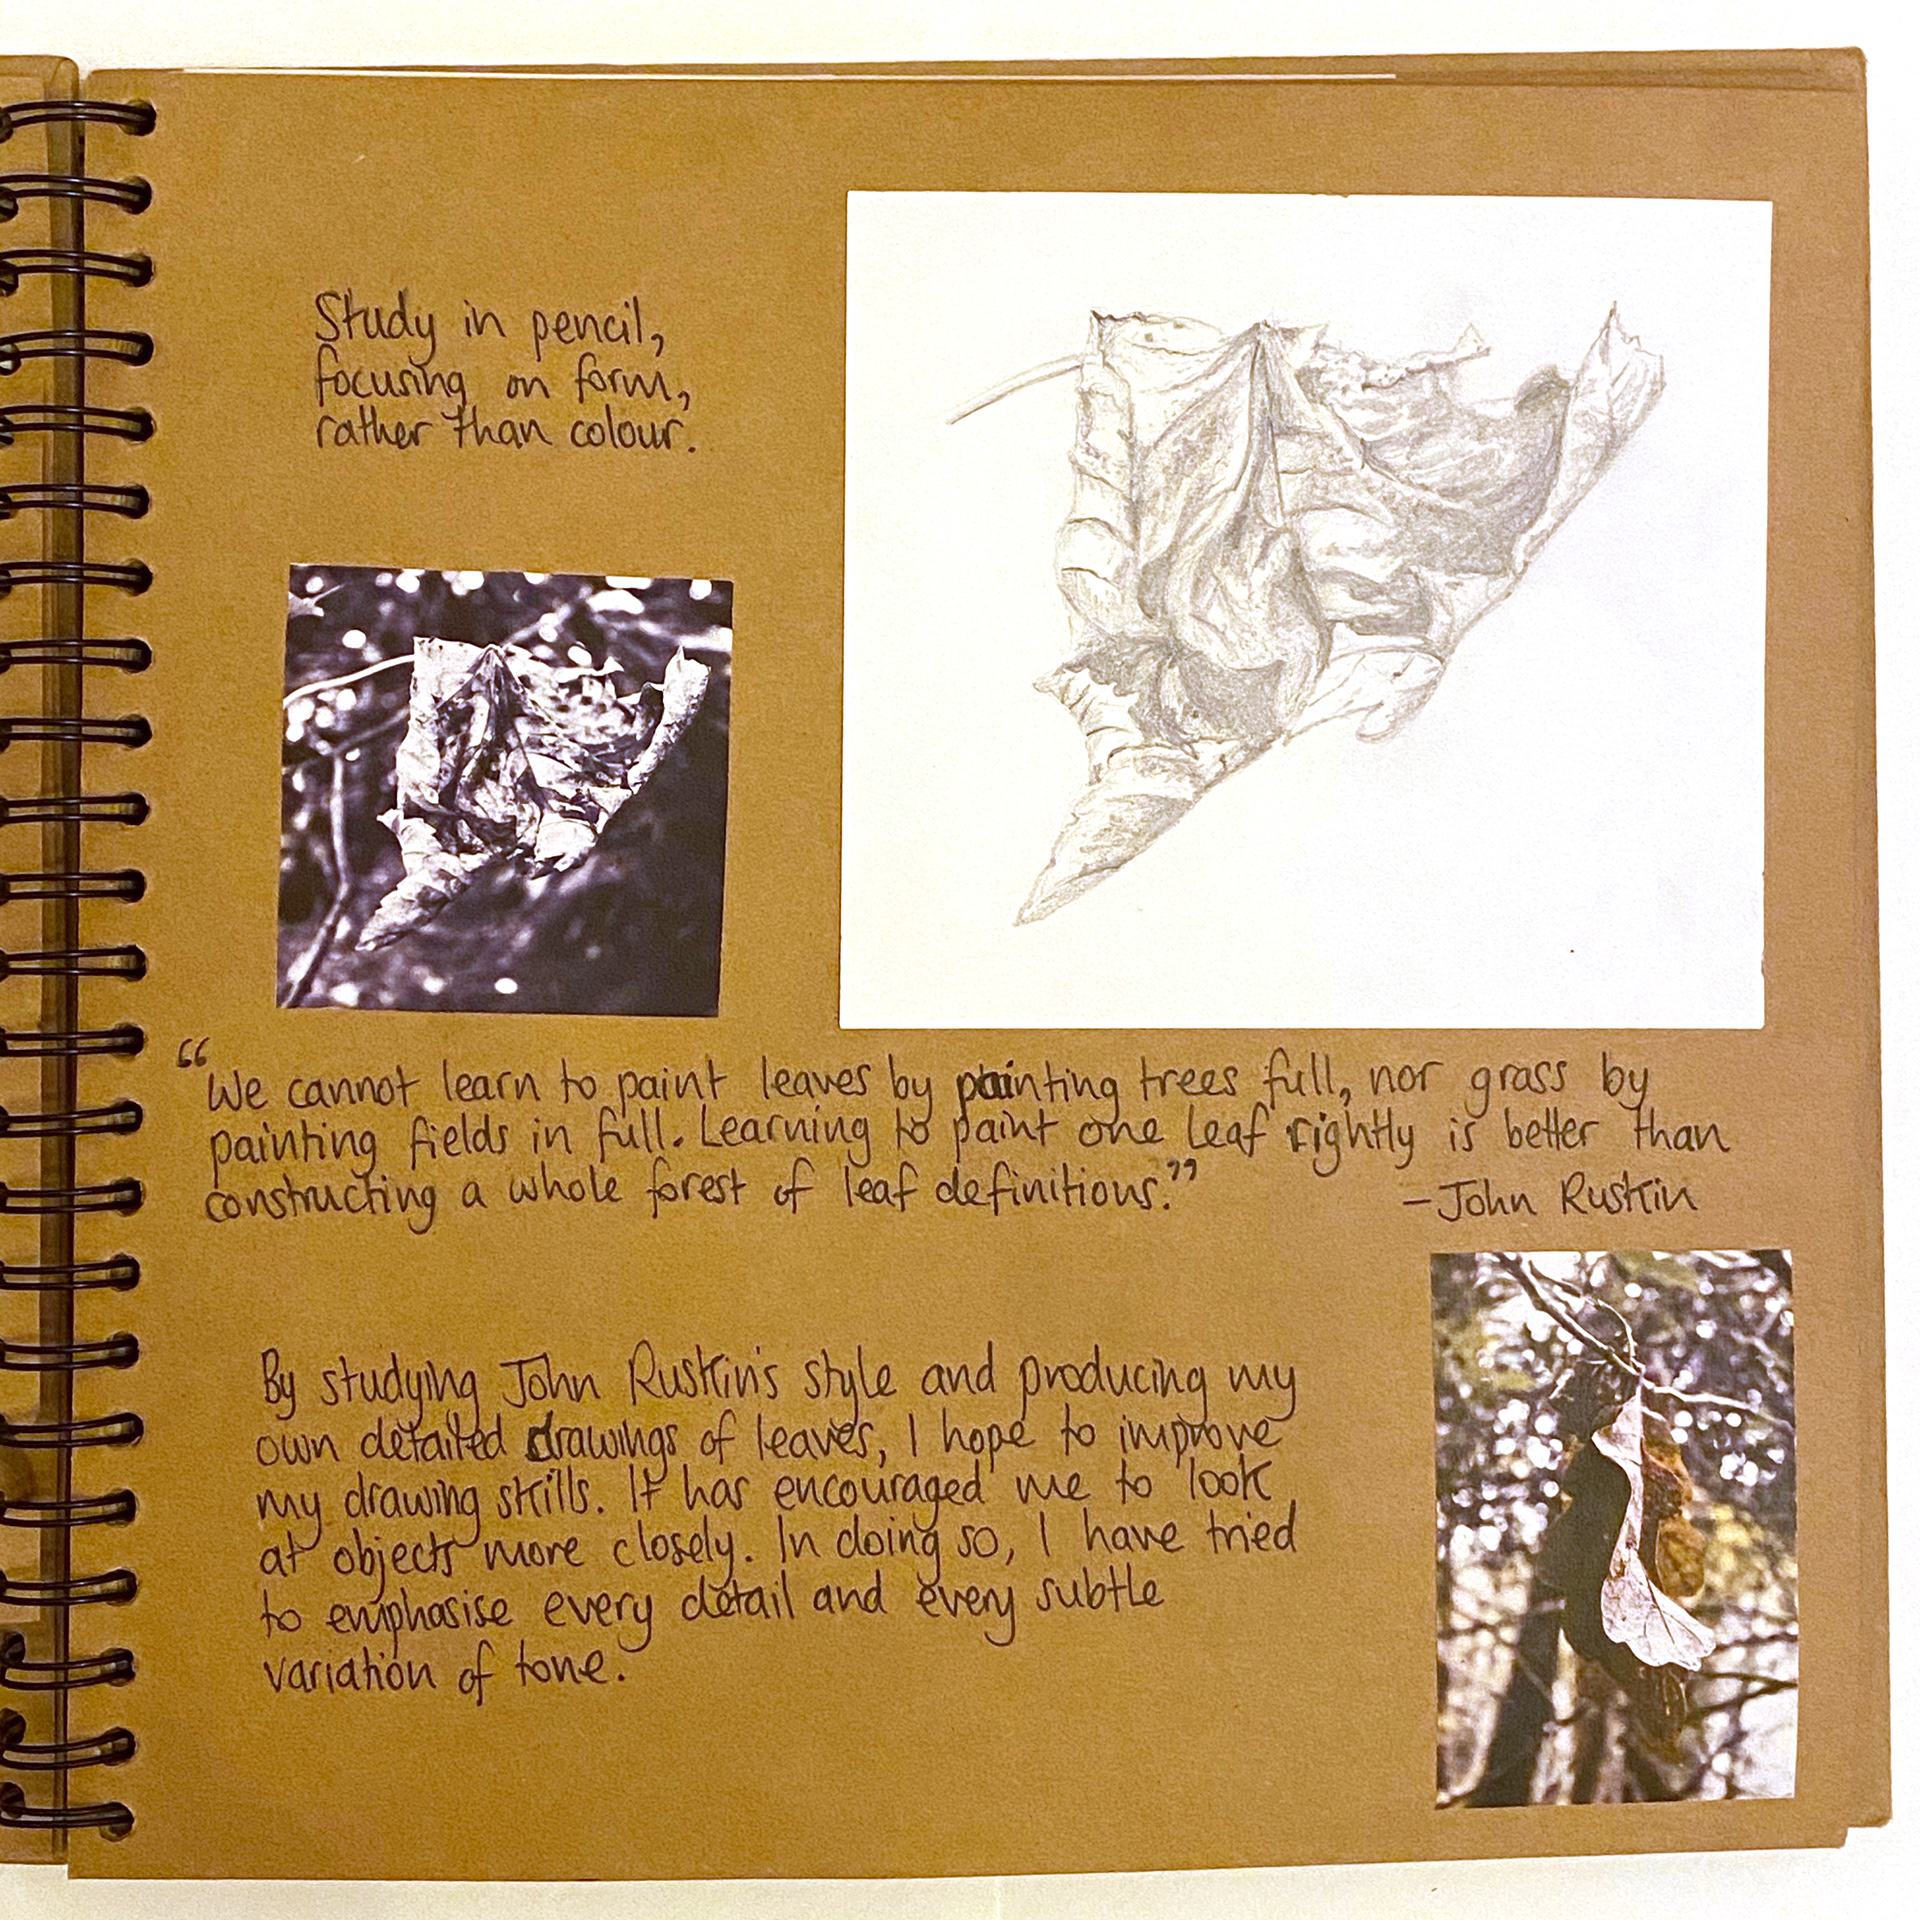 Study in pencil,
focusing on form,
rather than colour.
“We cannot learn to paint leaves by painting trees full, nor grass by
painting fields in full. Learning to paint one leaf rightly is better than
constructing a whole forest of leaf definitions.”
–John Ruskin
By studying John Ruskin's style and producing my
own detailed drawings of leaves, I hope to improve
my drawing skills. It has encouraged me to look
at objects more closely. In doing so, I have tried
to emphasise every detail and every subtle
variation of tone.